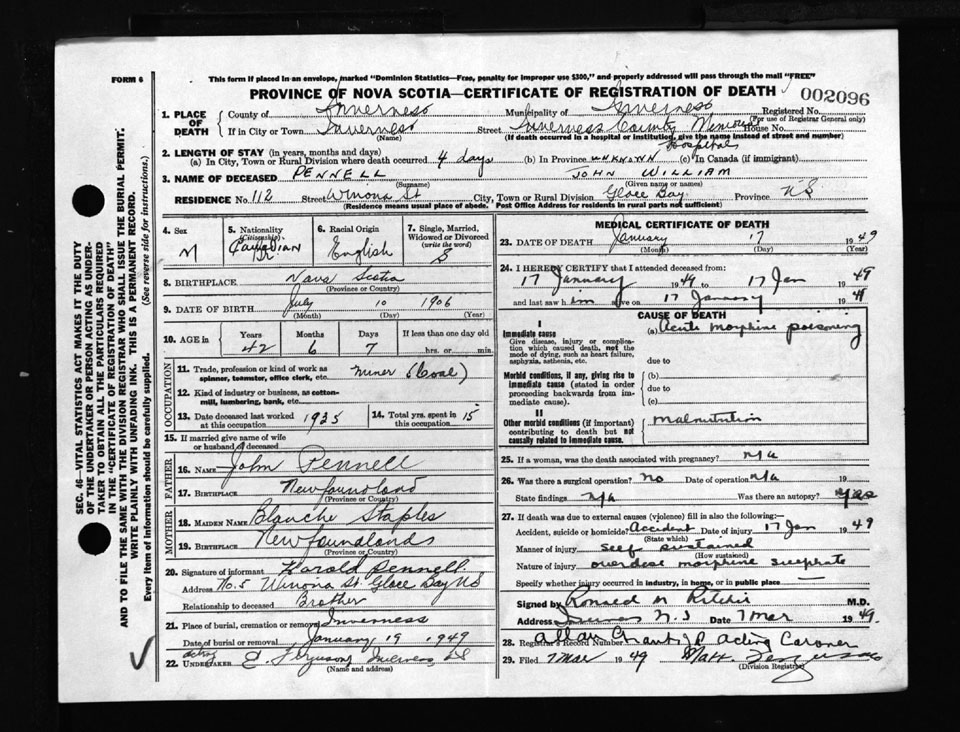 FORM 6
This form if placed in an envelope, marked "Dominion Statistics—Free, penalty for improper use $300," and properly addressed will pass through the mail "FREE"
PROVINCE OF NOVA SCOTIA—CERTIFICATE OF REGISTRATION OF DEATH
002096
1. PLACE OF DEATH
County of Inverness Municipality of Inverness Registered No.
(For use of Registrar General only)
If in City or Town Inverness Street Inverness County Memorial House No.
(Name) (If death occurred in a hospital or institution, give name instead of street and number)
Hospital
2. LENGTH OF STAY (in years, months and days)
(a) In City, Town or Rural Division where death occurred 4 days (b) In Province unknown (c) In Canada (if immigrant)
3. NAME OF DECEASED PENNELL JOHN WILLIAM
(Surname) (Given name or names)
RESIDENCE No. 112 Street Winona St City, Town or Rural Division Glace Bay Province NS
(Residence means usual place of abode. Post Office Address for residents in rural parts not sufficient)
4. Sex
M
5. Nationality (Citizenship)
Canadian
Br.
6. Racial Origin
English
7. Single, Married, Widowed or Divorced (write the word)
S
8. BIRTHPLACE Nova Scotia
(Province or Country)
9. DATE OF BIRTH July 10 1906
(Month) (Day) (Year)
10. AGE in Years Months Days If less than one day old
42 6 7 hrs. or min.
OCCUPATION
11. Trade, profession or kind of work as spinner, teamster, office clerk, etc. Miner (Coal)
12. Kind of industry or business, as cotton-mill, lumbering, bank, etc.
13. Date deceased last worked at this occupation 1935
14. Total yrs. spent in this occupation 15
15. If married give name of wife or husband of deceased
FATHER
16. NAME John Pennell
17. BIRTHPLACE Newfoundland
(Province or Country)
MOTHER
18. MAIDEN NAME Blanche Staples
19. BIRTHPLACE Newfoundland
(Province or Country)
20. Signature of informant Harold Pennell
Address No. 5 Winona St. Glace Bay NS
Relationship to deceased Brother
21. Place of burial, cremation or removal Inverness
Date of burial or removal January 19 1949
acting
22. UNDERTAKER E. Ferguson Inverness
(Name and address)
MEDICAL CERTIFICATE OF DEATH
23. DATE OF DEATH January 17 1949
(Month) (Day) (Year)
24. I HEREBY CERTIFY that I attended deceased from:
17 January 1949 to 17 Jan 1949
and last saw him alive on 17 January 1949
CAUSE OF DEATH
I
Immediate cause (a) Acute morphine poisoning
Give disease, injury or complication which caused death, not the mode of dying, such as heart failure, asphyxia, asthenia, etc.
due to
Morbid conditions, if any, giving rise to immediate cause (stated in order proceeding backwards from immediate cause).
(b)
due to
(c)
II
Other morbid conditions (if important) contributing to death but not causally related to immediate cause.
Malnutrition
25. If a woman, was the death associated with pregnancy? n/a
26. Was there a surgical operation? no Date of operation n/a 19
State findings n/a Was there an autopsy? yes
27. If death was due to external causes (violence) fill in also the following:—
Accident, suicide or homicide? Accident Date of injury 17 Jan 1949
(State which)
Manner of injury self sustained
(How sustained)
Nature of injury overdose morphine sulphate
Specify whether injury occurred in industry, in home, or in public place —
Signed by Ronald M Ritchie M.D.
Address N.S Date 7 Mar 1949
28. Registrar's Record Number
Allan Grant JP Acting Coroner
29. Filed 7 Mar 1949 Matt. Ferguson
(Division Registrar)
SEC. 46—VITAL STATISTICS ACT MAKES IT THE DUTY
OF THE UNDERTAKER OR PERSON ACTING AS UNDER-
TAKER TO OBTAIN ALL THE PARTICULARS REQUIRED
IN THE "CERTIFICATE OF REGISTRATION OF DEATH"
AND TO FILE THE SAME WITH THE DIVISION REGISTRAR WHO SHALL ISSUE THE BURIAL PERMIT.
WRITE PLAINLY WITH UNFADING INK. THIS IS A PERMANENT RECORD.
Every item of information should be carefully supplied. (See reverse side for instructions.)